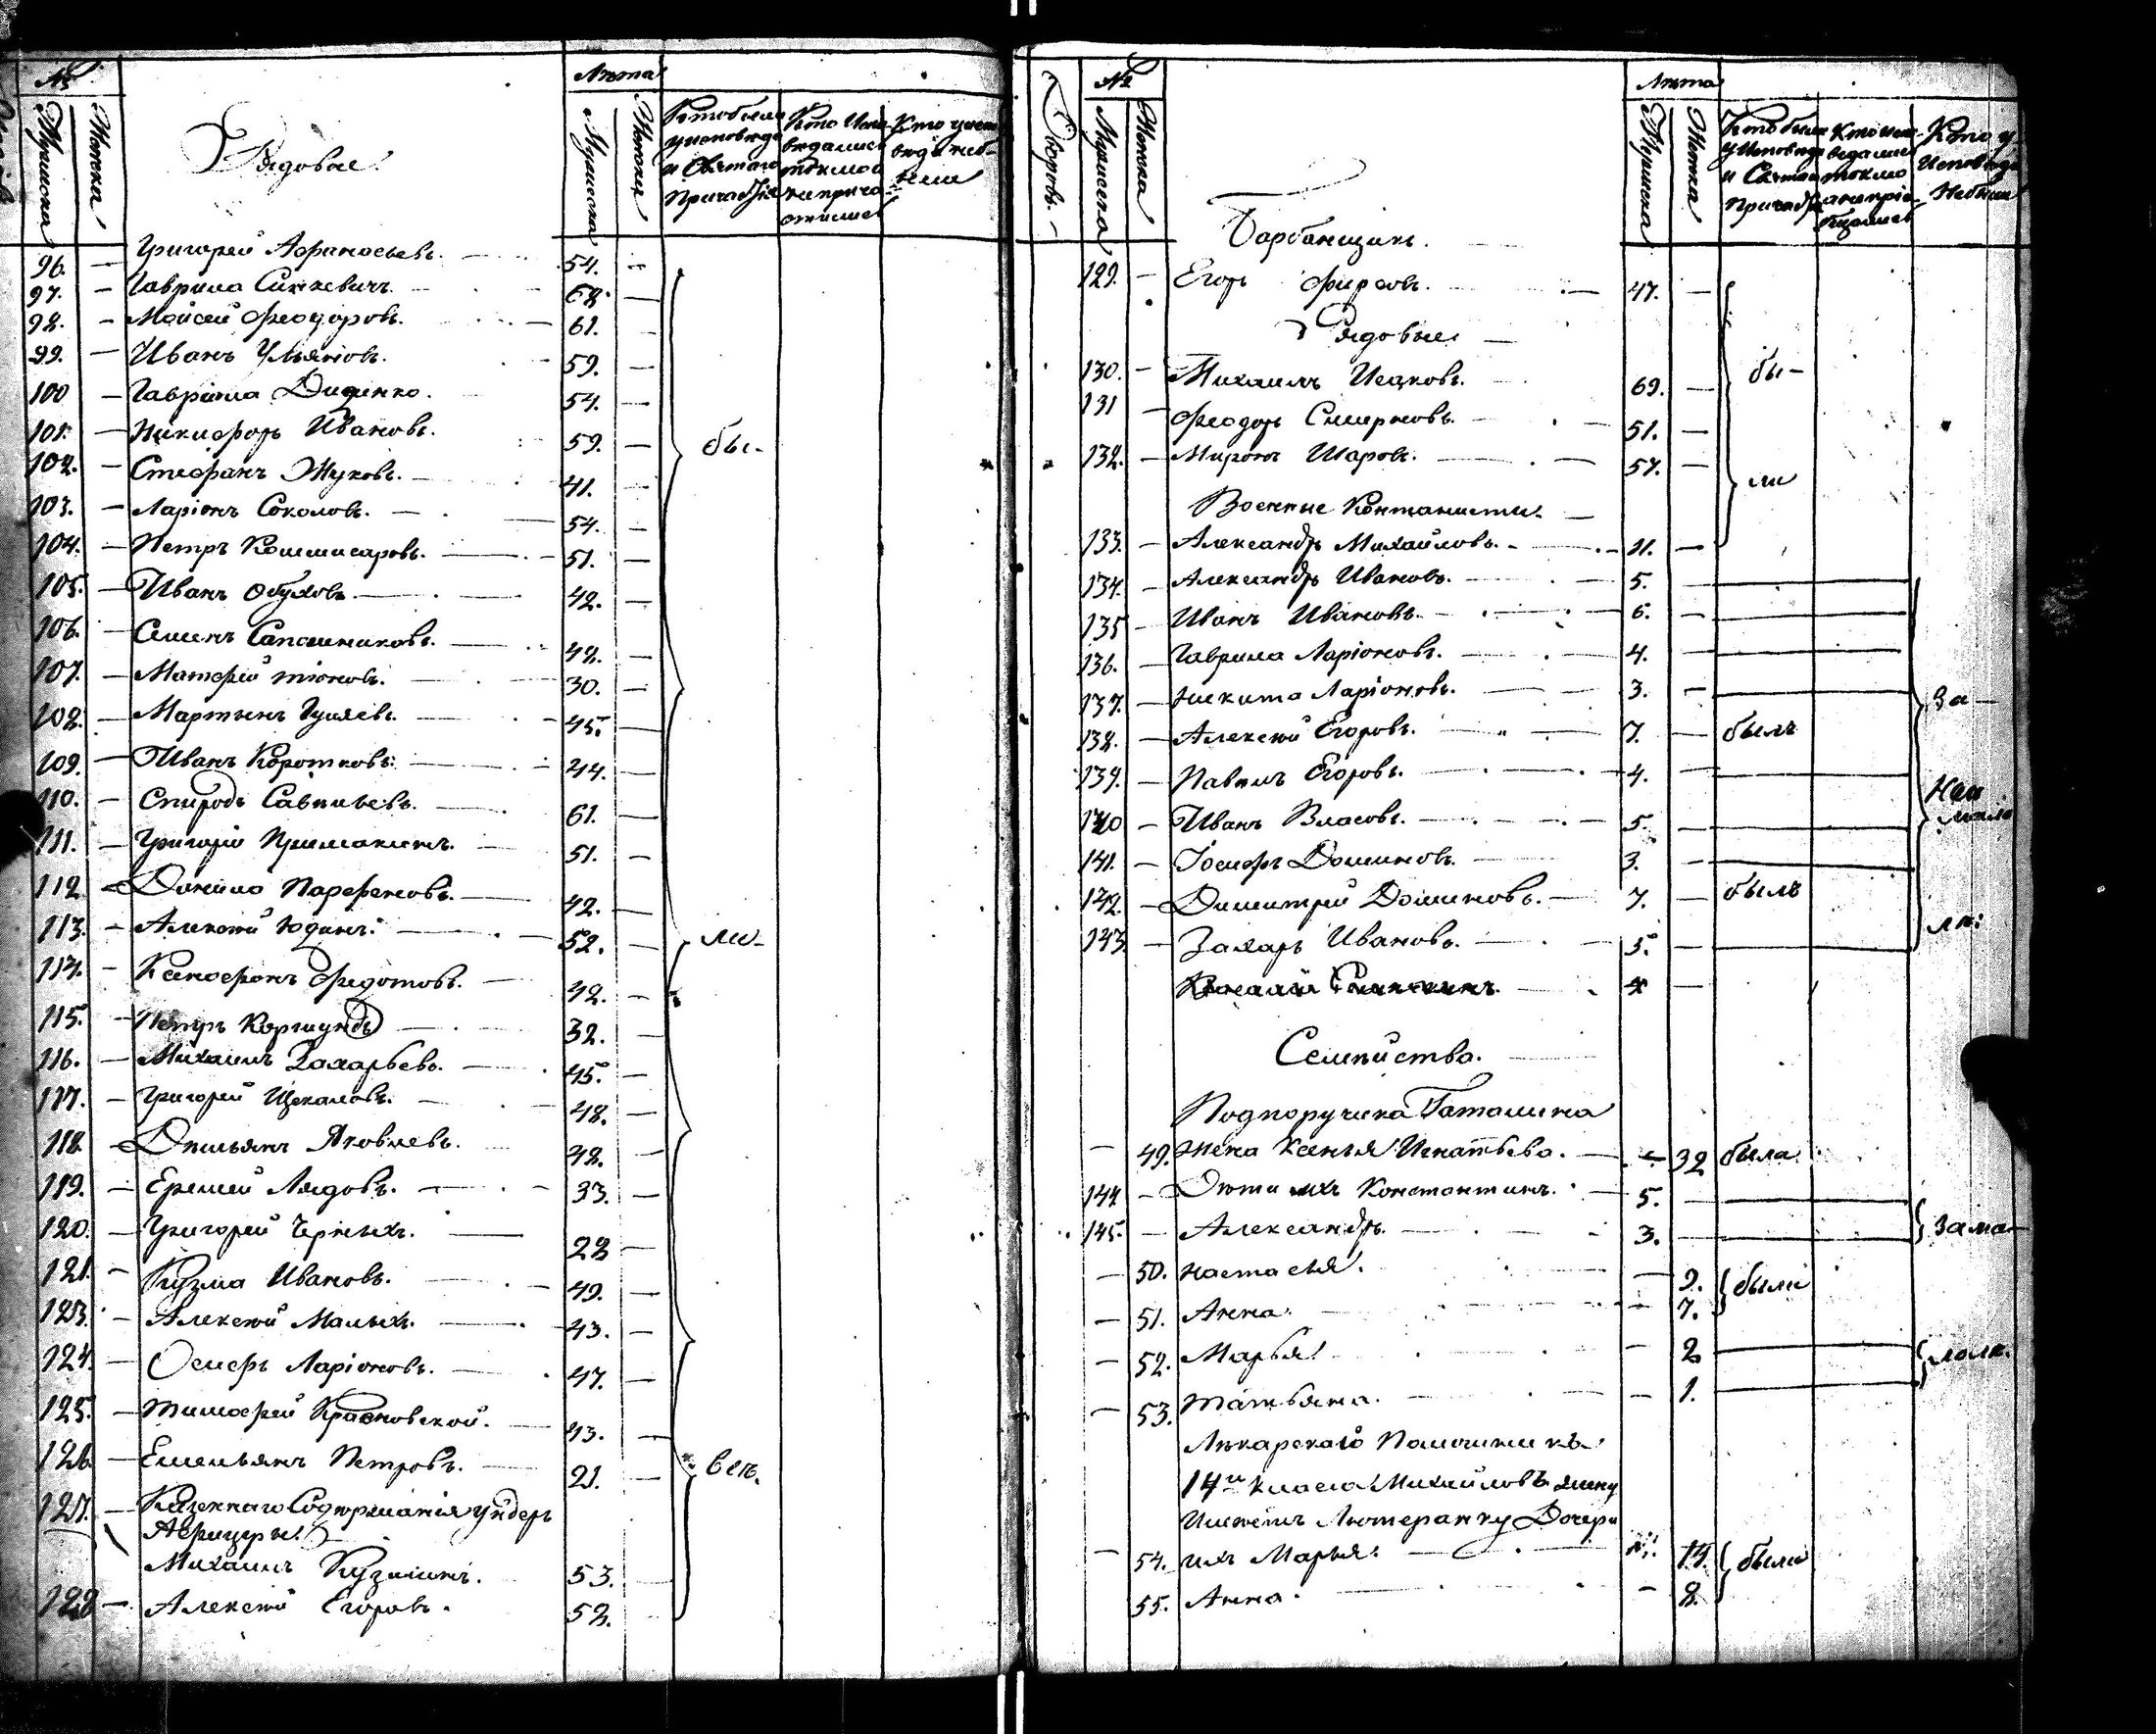 №
Мужеска
Женска
Рядовые.
Лѣта
Мужеска
Женска
Кто были
у исповѣди
и Святаго
Кто Испо-
вѣдались
токмо а
не прича-
стились
96. — Григорей Афанасьевъ. — 54. —
97. — Гаврила Синкевичъ. 62. —
98. — Мойсей Феодоровъ. — 61. —
99. — Иванъ Ульяновъ. 59. —
100 — Гавріила Диденко. 54. —
101. — Никифоръ Ивановъ. 59. — бы-
102. — Стефанъ Жуковъ. — 41. —
103. — Ларіонъ Соколовъ. — 54. —
104. — Петръ Коммисаровъ. — 51. —
105. — Иванъ Обуховъ. — 42. —
106. — Семенъ Сапожниковъ. — 42. —
107. — Матфей 30. —
108. — Мартынъ Гуляевъ. — 45. —
109. — Иванъ Коротковъ. — 44. —
110. — Спиридъ Савельевъ. — 61. —
111. — Григорій 51. —
112. — Данило Парфеновъ. — 42. —
113. — Алексѣй Юдинъ. — 52. — ли-
114. — Ксенофонъ Федотовъ. — 42. —
115. — Петръ Коршундъ — 32. —
116. — Михаилъ Захарьевъ. — 45. —
117. — Григорей Щекаловъ. — 48. —
118. — Емельянъ Яковлевъ. 42. —
119. — Еремей Лядовъ. — 33. —
120. — Григорей Черныхъ. — 28 —
121. — Кузма Ивановъ. — 49. —
123. — Алексѣй Малыхъ. — 43. —
124. — Осифъ Ларіоновъ. — 47. —
125. — Тимофей Красновской. — 43. —
126. — Емельянъ Петровъ. — 21. — всѣ.
127. — Казеннаго Содержанія Ундеръ
Афицеры.
Михаилъ Кузминъ. 53. —
128 — Алексѣй Егоровъ. 52. —
Дворовъ. —
№
Мужеска
Женска
Лѣта
Мужеска
Женска
Кто были
у Исповѣди
и Святаго
Кто испо-
ведались
токмо
Кто у
Исповѣди
Небыли
Барбанщикъ.
129. — Егоръ Фирсовъ. — 47. —
Рядовые. —
130. — Михаилъ Исаковъ. 69. — бы-
131 — Феодоръ Смирновъ. — 51. —
132. — Миронъ Шаровъ. — 57. — ли
Военные Контанисты. —
133. — Александръ Михайловъ. — 11. —
134. — Александръ Ивановъ. — 5. —
135 — Иванъ Ивановъ. — 6. —
136. — Гаврила Ларіоновъ. — 4. —
137. — Никита Ларіоновъ. — 3. — За-
138. — Алексѣй Егоровъ. — 7. — былъ
139. — Павелъ Егоровъ. — 4. —
140 — Иванъ Власовъ. — 5. —
141. — Іосифъ Доминовъ. — 3. —
142. — Димитрей Доминовъ. — 7. — былъ
143. — Захаръ Ивановъ. — 5. —
4 —
Семейства. —
Подпоручика Гаталина
— 49. жена Ксенья Игнатьева. — 32 была.
144 — Дѣти ихъ Константинъ. — 5.
145. — Александръ. — 3. — Зама-
— 50. Настасья. — 9. были
— 51. Анна. — 7.
— 52. Марья. — 2 лолѣ.
— 53. Татьяна. — 1.
Лѣкарскаго Помошника
14го класа Михайловъ жену
имѣетъ Лютеранку Дочери
— 54. ихъ Марья. — 14. были
55. Анна. — 8.